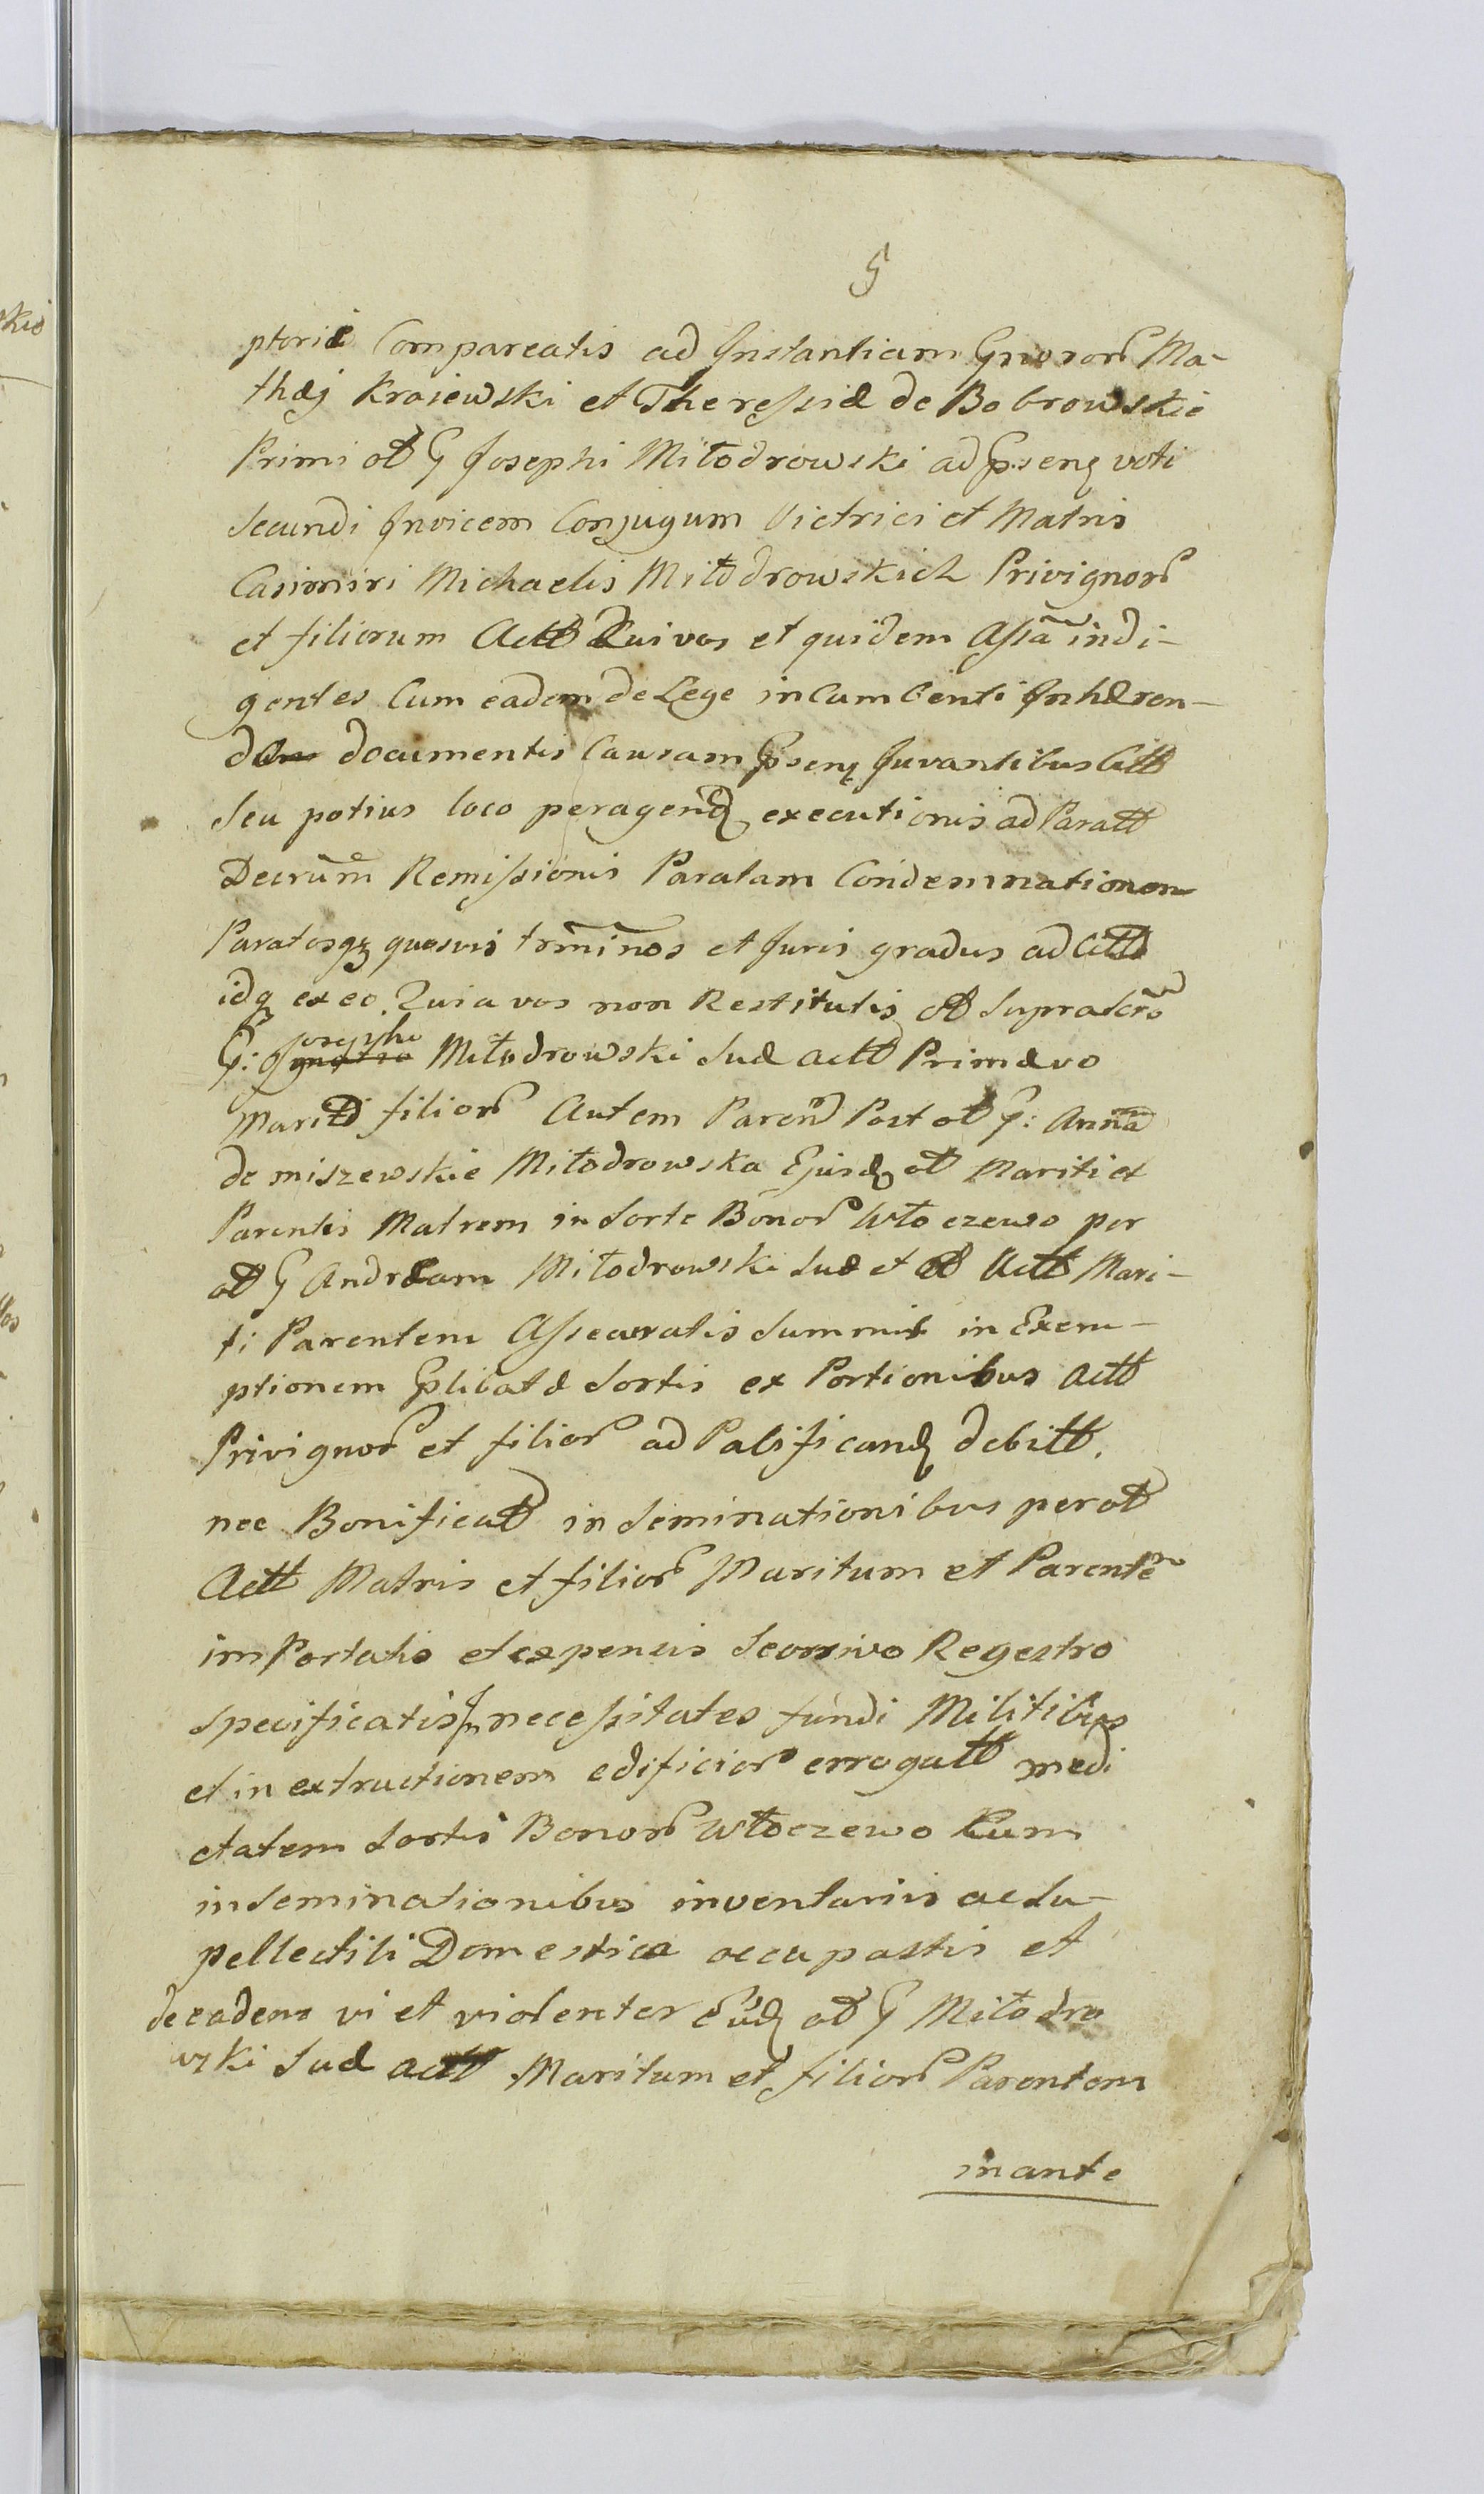 5
ptorie Compareatis ad Instantiam Gnosor Ma-
thæj Krajewski et Theressiæ de Bobrowskie
Primi ol G Josephi Miłodrowski ad psens voti
secundi Invicem Conjugum Victrici et Matris
Casimiri Michaelis Miłodrowskich Privignor
et filiorum Actt Qui vos et quidem Assã indi-
gentes Cum eadem de Lege incumbenti Inhæren-
do documentis Causam psens Juvantibus Citt
Seu potius loco peragend executionis ad Paratt
Decrum Remissionis Paratam Condemnationem
Paratosq quosvis trminos et Juris gradus ad Citt
idq ex eo Quia vos non Restitutis ol suprascro
G: Josepho Miłodrowski suæ actt Primævo
Mariti filior Autem Paren Post ol G: Anna
de miszewskie Miłodrowska Ejusd ol Mariti et
Parentis Matrem in sorte Bonor Włoczewo per
ol G Andræam Miłodrowski suæ et ol Actt Mari-
ti Parentem Assecuratis summis in Exem-
ptionem plibatæ sortis ex Portionibus actt
Privignor et filior ad Palificand debitt.
nec Bonificat inseminationibus per ol
Actt Matris et filior Maritum et Parente
importatis et expensis seorsivo Regestro
specificatis In necessitates fundi Militibus
et in extructionem edificior errogatt medi
etatem sortis Bonor Włoczewo Cum
inseminationibus inventariis ac su-
pellectili Domestica occupastis et
de eadem vi et violenter Eud ol G Miłodro
wski suæ actt Maritum et filior Parentem
inante